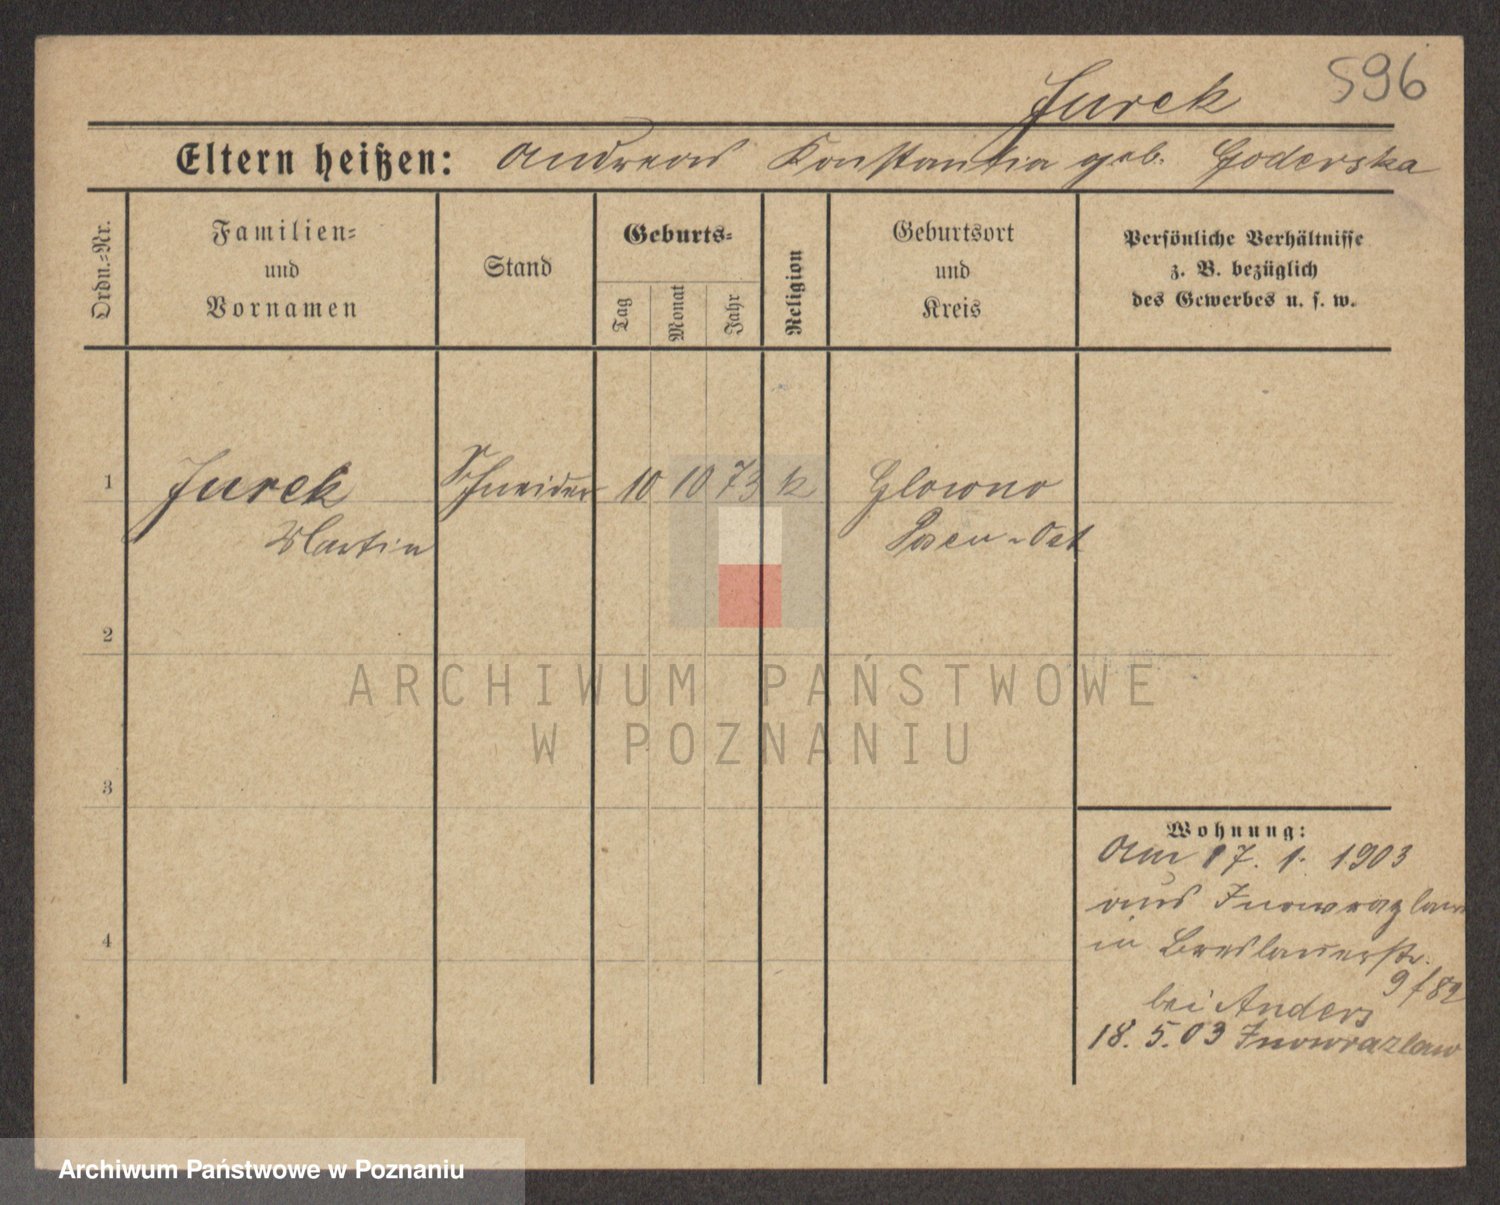 Jurek 596
Eltern heißen: Andreas Konstantia geb. Goderska
Ordn.-Nr.
Familien-
und
Vornamen
Stand
Geburts-
Tag
Monat
Jahr
Religion
Geburtsort
und
Kreis
Persönliche Verhältnisse
z. B. bezüglich
des Gewerbes u. s. w.
1 Jurek Schneider 10 10 73 k Glowno
Martin Posen-Ost
2
ARCHIWUM PAŃSTWOWE
W POZNANIU
3
Wohnung:
Am 17. 1. 1903
aus Inowrazlaw
4
in Breslauerstr.
9 / 82
bei Anders
18. 5. 03 Inowrazlaw
Archiwum Państwowe w Poznaniu